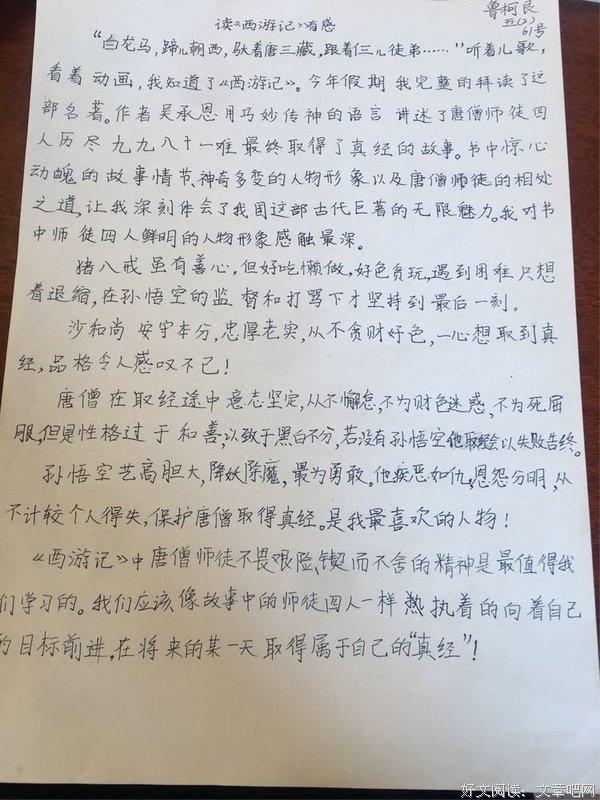 鲁柯良
五(2)
61号
读《西游记》有感
“白龙马,蹄儿朝西,驮着唐三藏,跟着仨儿徒弟……”听着儿歌,
看着动画,我知道了《西游记》。今年假期我完整的拜读了这
部名著。作者吴承恩用巧妙传神的语言 讲述了唐僧师徒四
人历尽九九八十一难最终取得了真经的故事。书中惊心
动魄的故事情节、神奇多变的人物形象以及唐僧师徒的相处
之道,让我深刻体会了我国这部古代巨著的无限魅力。我对书
中师徒四人鲜明的人物形象感触最深。
猪八戒虽有善心,但好吃懒做,好色贪玩,遇到困难只想
着退缩,在孙悟空的监督和打骂下才坚持到最后一刻。
沙和尚安守本分,忠厚老实,从不贪财好色,一心想取到真
经,品格令人感叹不已!
唐僧在取经途中意志坚定,从不懈怠,不为财色迷惑,不为死屈
服,但是性格过于和善,以致于黑白不分,若没有孙悟空他取经会以失败告终。
孙悟空艺高胆大,降妖除魔,最为勇敢。他疾恶如仇,恩怨分明,从
不计较个人得失,保护唐僧取得真经。是我最喜欢的人物!
《西游记》中唐僧师徒不畏艰险、锲而不舍的精神是最值得我
们学习的。我们应该像故事中的师徒四人一样热执着的向着自己
的目标前进,在将来的某一天取得属于自己的“真经”!
好文阅读:文章吧网